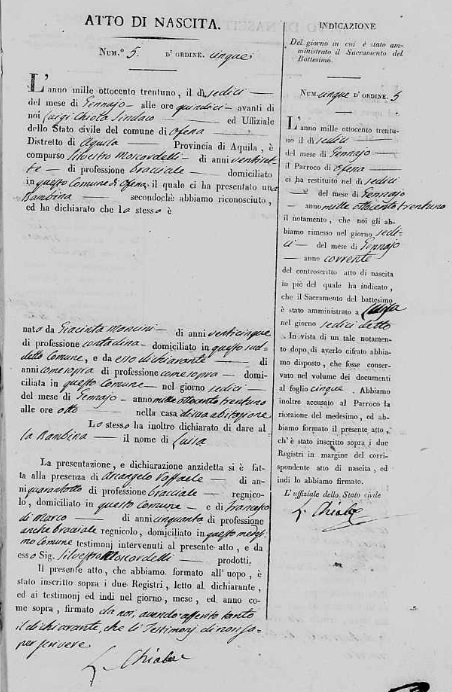 ATTO DI NASCITA.
Num.° 5 d'ordine cinque
L'anno mille ottocento trentuno, il dì sedici
del mese di Gennajo alle ore quindici avanti di
noi Luigi Chiola Sindaco ed Uffiziale
dello Stato civile del comune di Ofena
Distretto di Aquila Provincia di Aquila, è
comparso Silvestro Moscardelli di anni
di professione bracciale domiciliato
in questo Comune di Ofena, il quale ci ha presentato una
Bambina secondochè abbiamo riconosciuto,
ed ha dichiarato che lo stesso è
nato da Giacinta Mancini di anni venticinque
di professione contadina domiciliata in questo sud-
detto Comune, e da esso dichiarante di
anni come sopra di professione come sopra domi-
ciliata in questo Comune nel giorno sedici
del mese di Gennajo anno mille ottocento trentuno
alle ore otto nella casa di sua abitazione
Lo stesso ha inoltre dichiarato di dare al
la Bambina il nome di Luisa
La presentazione, e dichiarazione anzidetta si è fat-
ta alla presenza di Arcangelo Raffaele di an-
ni quarantotto di professione bracciale regnico-
lo, domiciliato in questo Comune e di Francesco
di Marco di anni cinquanta di professione
anche bracciale regnicolo, domiciliato in questo medesi-
mo Comune testimonj intervenuti al presente atto, e da
esso Sig. Silvestro Moscardelli prodotti.
Il presente atto, che abbiamo formato all'uopo, è
stato inscritto sopra i due Registri, letto al dichiarante,
ed ai testimonj ed indi nel giorno, mese, ed anno co-
me sopra, firmato da noi, avendo asserito tanto
il dichiarante, che li Testimonj di non sa-
per scrivere
L. Chiola
INDICAZIONE
Del giorno in cui è stato am-
ministrato il Sacramento del
Battesimo.
Num. cinque d'ordine 5
L'anno mille ottocento trentu-
no il dì sedici
del mese di Gennajo
il Parroco di Ofena
ci ha restituito nel dì sedici
del mese di Gennajo
anno mille ottocento trentuno
il notamento, che noi gli ab-
biamo rimesso nel giorno sedi-
ci del mese di Gennajo
anno corrente
del controscritto atto di nascita
in piè del quale ha indicato,
che il Sacramento del battesimo
è stato amministrato a Luisa
nel giorno sedici detto
In vista di un tale notamen-
to dopo di averlo cifrato abbia-
mo disposto, che fosse conser-
vato nel volume dei documenti
al foglio cinque. Abbiamo
inoltre accusato al Parroco la
ricezione del medesimo, ed ab-
biamo formato il presente atto,
ch'è stato inscritto sopra i due
Registri in margine del corri-
spondente atto di nascita, ed
indi lo abbiamo firmato.
L'uffiziale dello Stato civile
L. Chiola